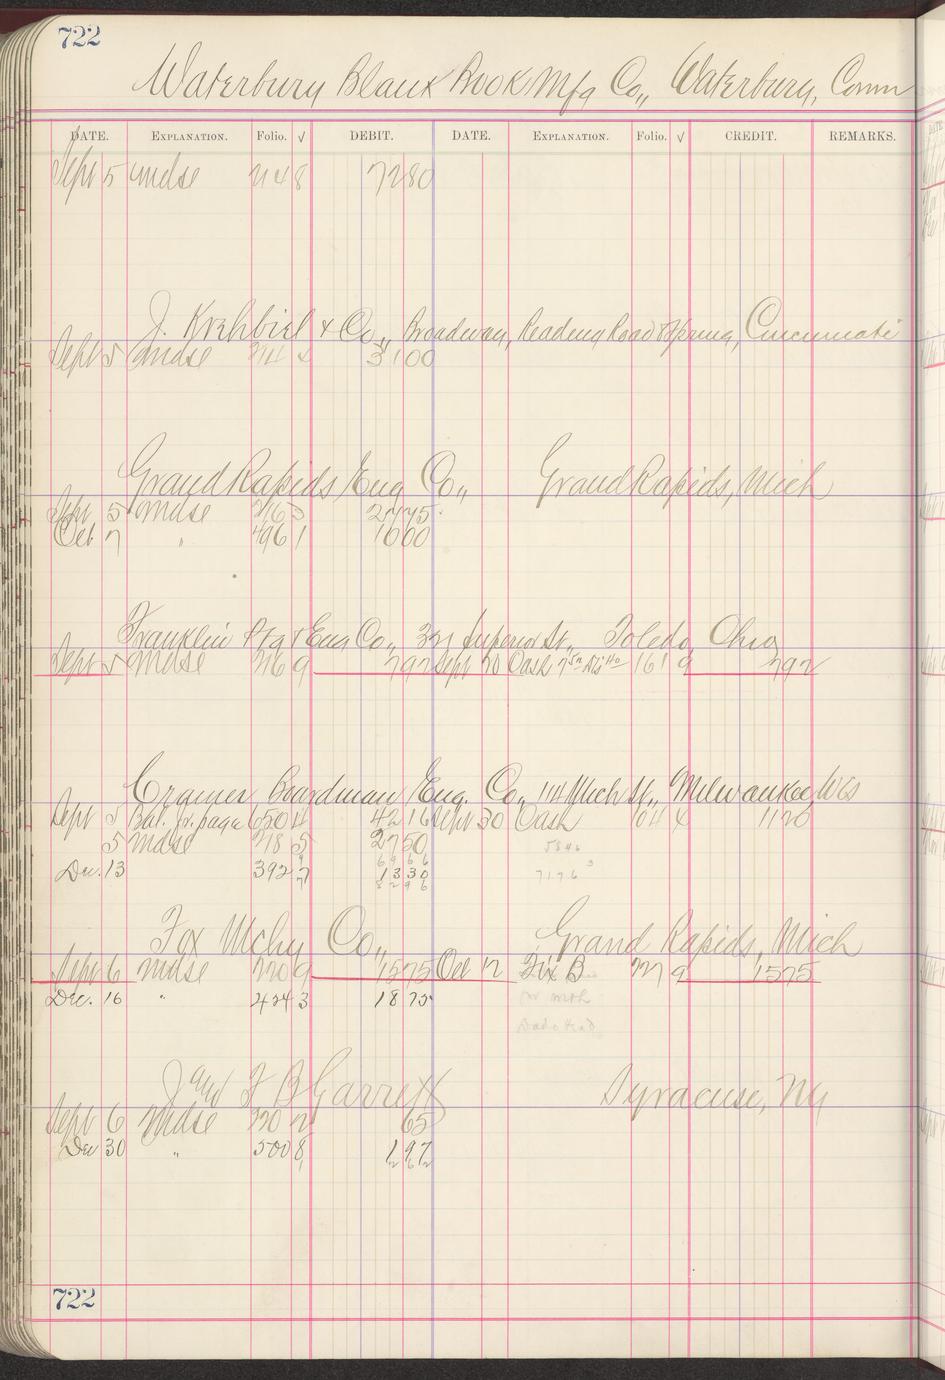 722
Waterbury Blank Book Mfg Co,, Waterbury, Conn
DATE. EXPLANATION. Folio. √ DEBIT. DATE. EXPLANATION. Folio. √ CREDIT. REMARKS.
Sept 5 mdse 214 8 7280
J. Krehbiel & Co,, Broadway, Reading Road & Spring, Cincinnati
Sept 5 mdse 3100
Grand Rapids Eng Co,, Grand Rapids, Mich
Sept 5 mdse 216 3 2775
Oct 7 " 496 1 1000
Franklin Ptg & Eng Co,, 321 Superior St,, Toledo, Ohio
Sept 5 mdse 216 9 792 Sept 20 Cash 161 9 792
Cramer, Boardman Eng. Co,, 114 Mich St,, Milwaukee Wis
Sept 5 Bal. fr. page 650 4 4216 Sept 30 Cash 1120
5 mdse 218 5 2750 5846
6966
Dec. 13 392 7 1330 7176
8296
Fox Mchy Co,, Grand Rapids, Mich
Sept 6 mdse 220 9 1575 Oct 12 227 9 1575
Dec. 16 " 424 3 1875
J and F B Garrett Syracuse, Ny
Sept 6 mdse 220 2 65
Dec 30 " 500 8 197
262
722